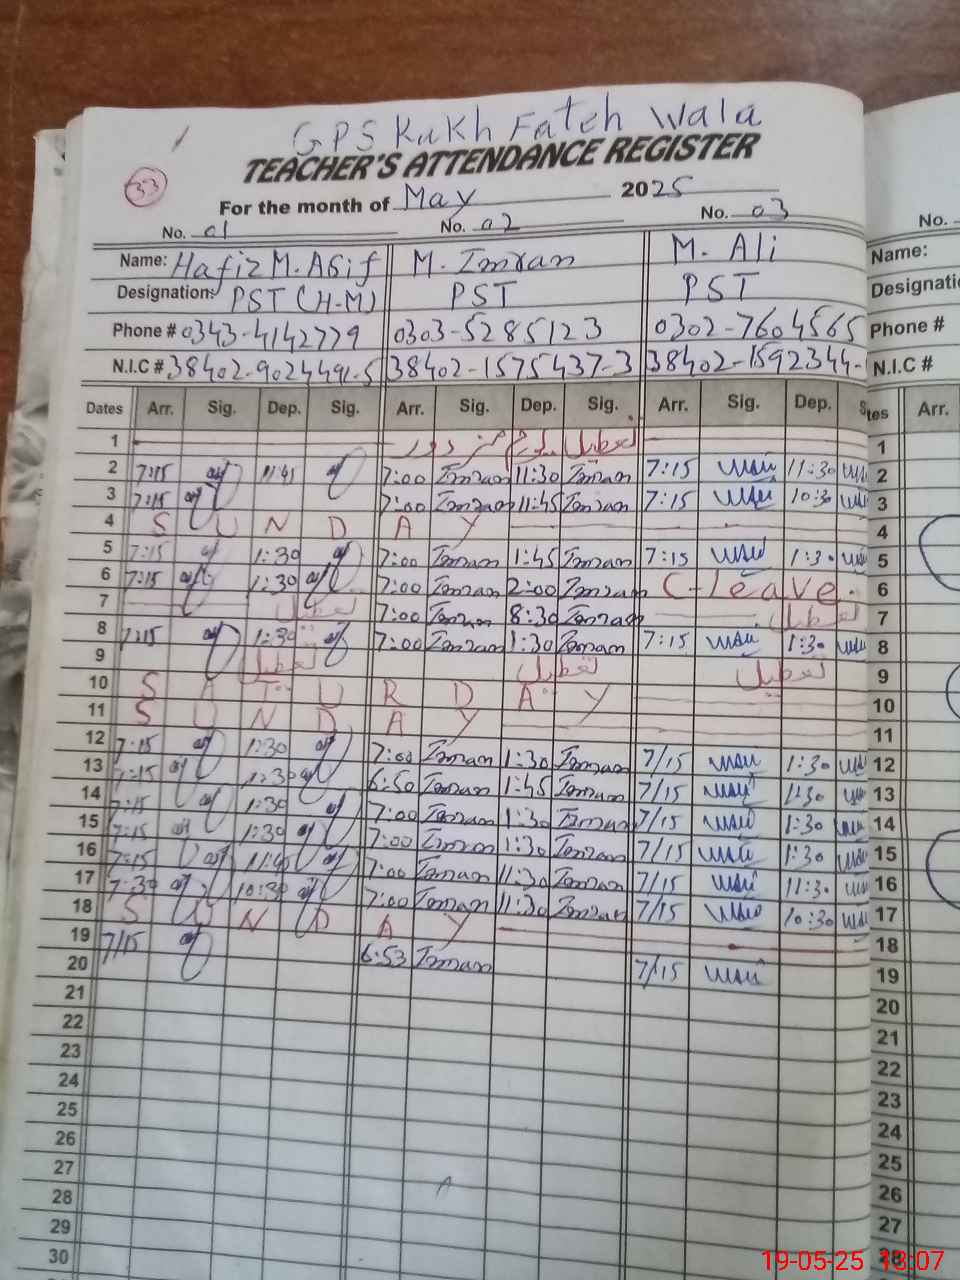 GPS Kukh Fateh Wala
TEACHER'S ATTENDANCE REGISTER
33
For the month of May 2025
No. 01 No. 02 No. 03 No.
Name: Hafiz M. Asif M. Imran M. Ali Name:
Designation: PST (H-M) PST PST
Phone # 0343-4142779 0303-5285123 0302-7604565 Phone #
N.I.C # 38402-9024491-5 38402-1575437-3 38402-1592344- N.I.C #
Dates Arr. Sig. Dep. Sig. Arr. Sig. Dep. Sig. Arr. Sig. Dep. Arr.
1 تعطیل 1
2 7:15 11:45 7:00 Imran 11:30 Imran 7:15 11:30 2
3 7:15 7:00 Imran 11:45 Imran 7:15 10:30 3
4 S U N D A Y 4
5 7:15 1:30 7:00 Imran 1:45 Imran 7:15 1:30 5
6 7:15 1:30 7:00 Imran 2:00 Imran C-Leave 6
7 تعطیل 7:00 Imran 8:30 Imran تعطیل 7
8 7:15 1:30 7:00 Imran 1:30 Imran 7:15 1:30 8
9 تعطیل تعطیل تعطیل 9
10 S A T U R D A Y 10
11 S U N D A Y 11
12 7:15 1:30 7:00 Imran 1:30 Imran 7/15 1:30 12
13 7:15 12:30 6:50 Imran 1:45 Imran 7/15 1:30 13
14 7:15 1:30 7:00 Imran 1:30 Imran 7/15 1:30 14
15 7:15 1:30 7:00 Imran 1:30 Imran 7/15 1:30 15
16 7:15 11:45 7:00 Imran 11:30 Imran 7/15 11:30 16
17 7:30 10:30 7:00 Imran 11:30 Imran 7/15 10:30 17
18 S U N D A Y 18
19 7/15 6:53 Imran 7/15 19
20 20
21 21
22 22
23 23
24 24
25 25
26 26
27 27
28 28
29
30
19-05-25 13:07